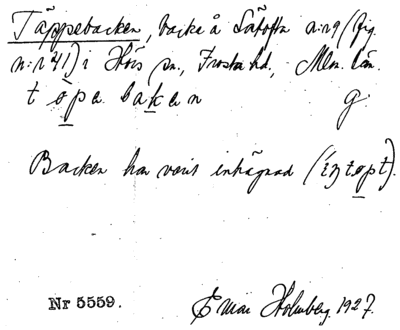 Täppebacken, backe å Sätofta n:r 9 (fig.
n:r 241) i Hörs sn., Frosta hd., Mlm. län.
töpebakan g.
Backen har varit inhägnad (íŋtöpt).
Nr 5559. Einar Holmberg. 1927.